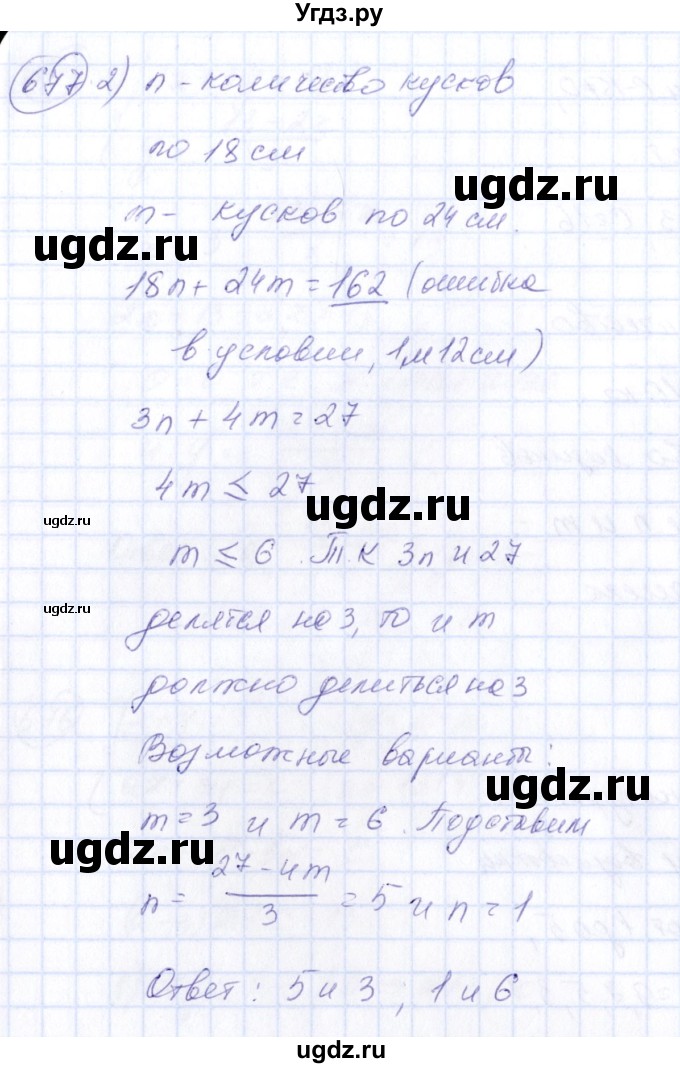 Угдз.ру
677 2) n - количество кусков
по 18 см
ugdz.ru
m - кусков по 24 см.
ugdz.ru
18n + 24m = 162 (ошибка
в условии, 1м 12см)
3n + 4m = 27
4m ≤ 27
ugdz.ru
ugdz.ru
m ≤ 6. Т.к 3n и 27
ugdz.ru
делятся на 3, то и m
должно делиться на 3
Возможные варианты:
ugdz.ru
m = 3 и m = 6. Подставим
ugdz.ru
n = (27 - 4m)/3 = 5 и n = 1
Ответ: 5 и 3; 1 и 6
ugdz.ru